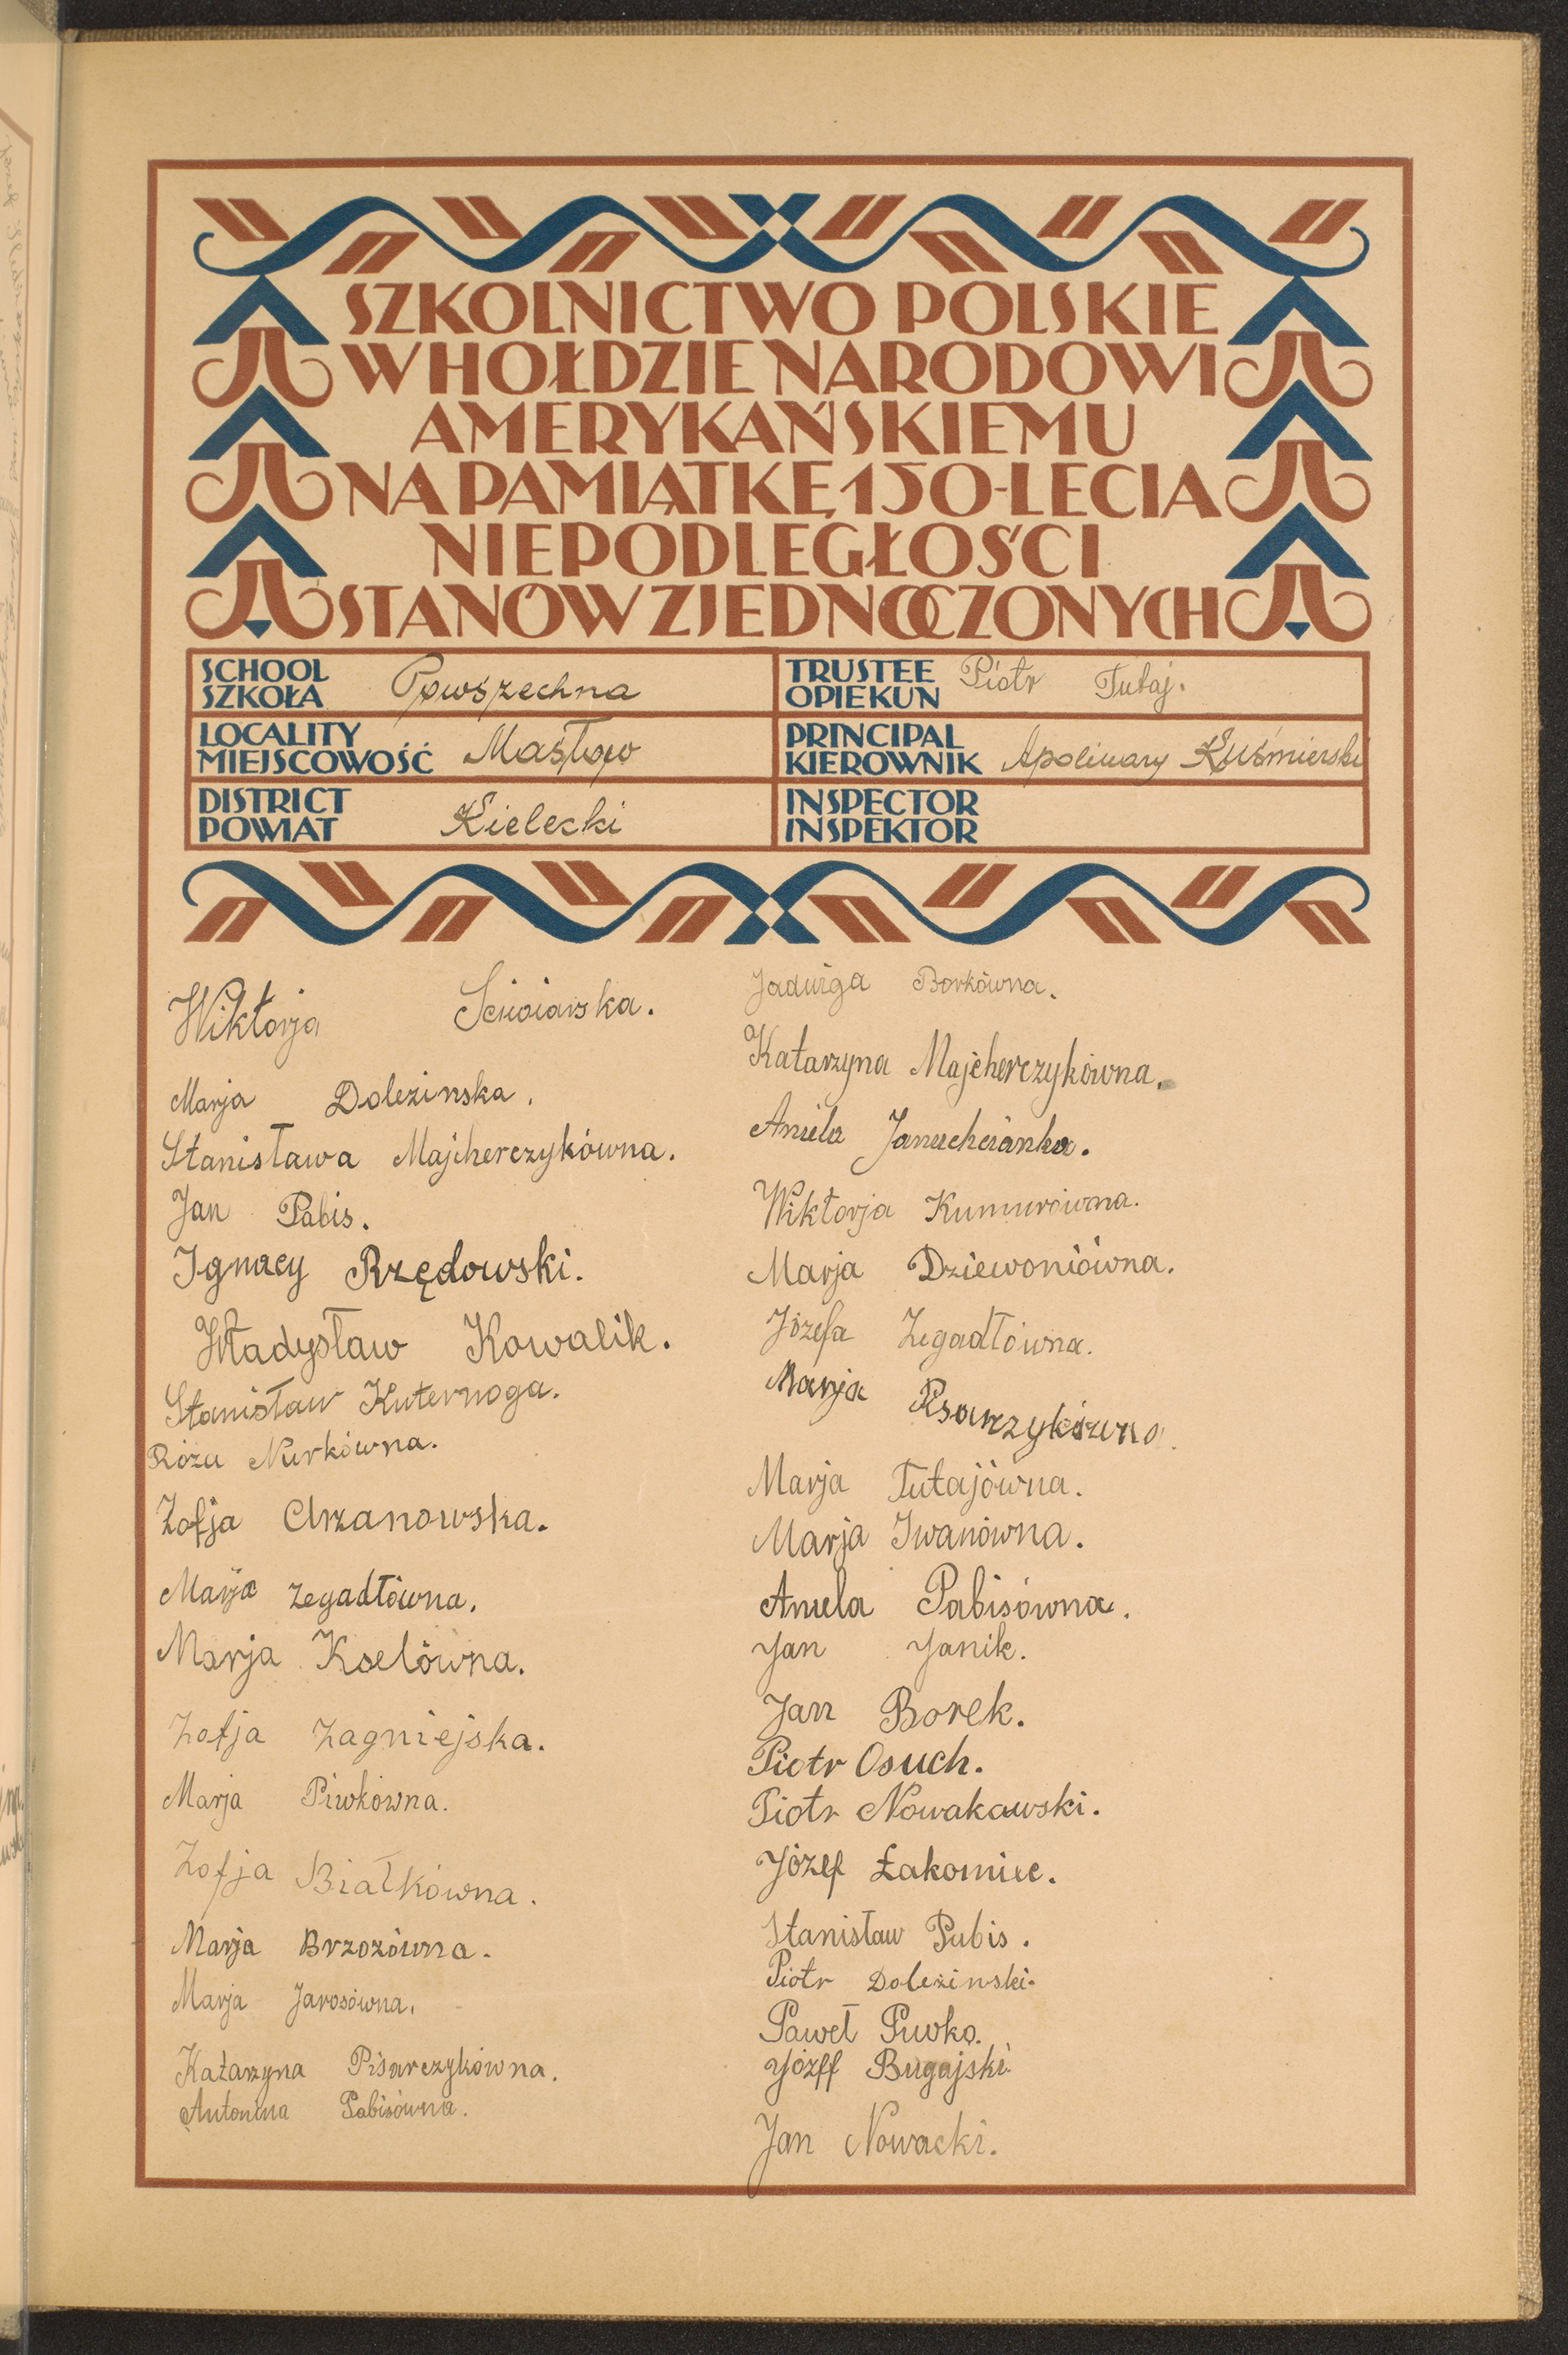 SZKOLNICTWO POLSKIE
W HOŁDZIE NARODOWI
AMERYKAŃSKIEMU
NA PAMIĄTKĘ 150-LECIA
NIEPODLEGŁOŚCI
STANÓW ZJEDNOCZONYCH
SCHOOL
SZKOŁA Powszechna
LOCALITY
MIEJSCOWOŚĆ Masłow
DISTRICT
POWIAT Kielecki
TRUSTEE
OPIEKUN Piotr Tutaj.
PRINCIPAL
KIEROWNIK Apolinary Kuśmierski
INSPECTOR
INSPEKTOR
Wiktorja
Marja Dolezinska.
Stanisława Majcherczykówna.
Jan Pabis.
Ignacy Rzędowski.
Władysław Kowalik.
Stanisław Kuternoga.
Róża Nurkówna.
Zofja Chrzanowska.
Marja Zegadłówna.
Marja Koelówna.
Zofja Zagniejska.
Marja Piwkówna.
Zofja Białkówna.
Marja Brzozówna.
Marja Jarosówna.
Katarzyna Pisarczykówna.
Antonina Pabisówna.
Jadwiga Borkówna.
Katarzyna Majcherczykówna.
Aniela Janucheianka.
Wiktorja Kumurówna.
Marja Dziewoniówna.
Józefa Zegadłówna.
Marja
Marja Tutajówna.
Marja Iwanówna.
Aniela Pabisówna.
Jan Janik.
Jan Borek.
Piotr Osuch.
Piotr Nowakawski.
Józef Łakomiec.
Stanisław Pabis.
Piotr Doleżinski.
Paweł Piwko.
Józef Bugajski
Jan Nowacki.